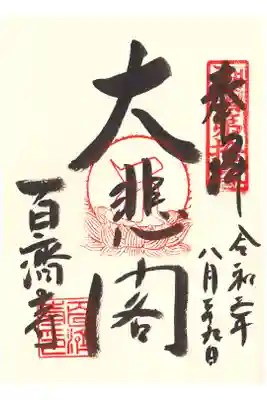 奉拝
令和三年
八月
九日
大悲閣
百済寺